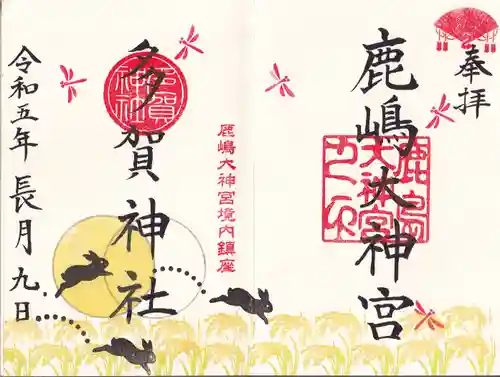 奉拝
鹿嶋大神宮
鹿嶋大神宮境内鎮座
多賀神社
令和五年長月九日